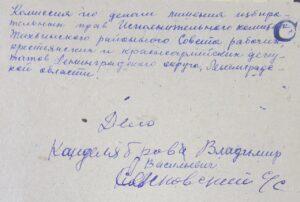 Комиссия по делам лишения избира-
тельных прав Исполнительного комит.
Тихвинского районного Совета рабочих
крестьянских и красноармейских депу-
татов Ленинградского округа, Ленинград-
ской области.
Дело
Канделяброва Владимир
Васильевич
с/с